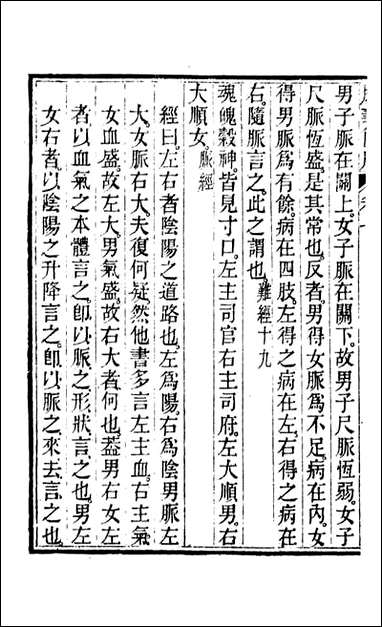 男子脈在關上。女子脈在關下。故男子尺脈恆弱。女子
尺脈恆盛。是其常也。反者。男得女脈爲不足。病在內。女
得男脈爲有餘。病在四肢。左得之病在左。右得之病在
右。隨脈言之。此之謂也。難經十九
魂魄穀神。皆見寸口。左主司官。右主司府。左大順男。右
大順女。脈經
經曰。左右者陰陽之道路也。左爲陽。右爲陰。男脈左
大。女脈右大。夫復何疑。然他書多言左主血。右主氣。
女血盛。故左大。男氣盛。故右大者何也。葢男右女左
者。以血氣之本體言之。卽以脈之形狀言之也。男左
女右者。以陰陽之升降言之。卽以脈之來去言之也。